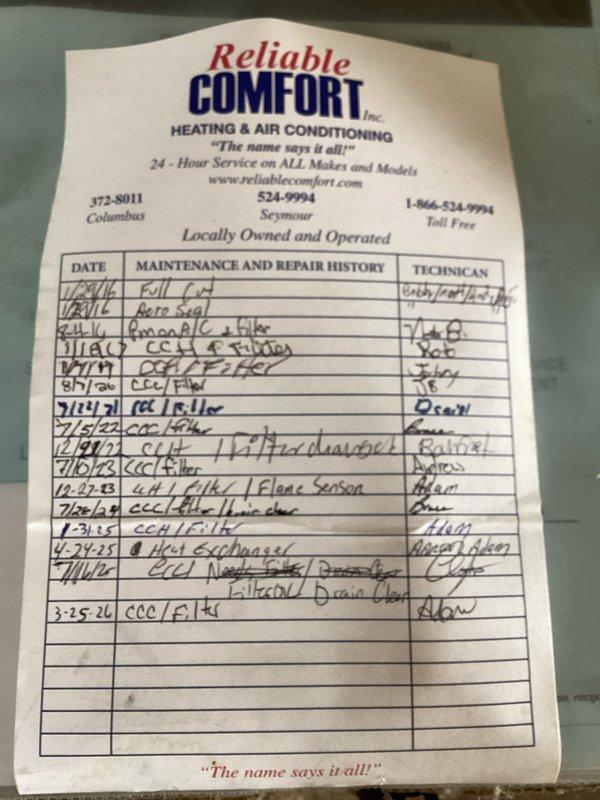 Reliable
COMFORT Inc.
HEATING & AIR CONDITIONING
"The name says it all!"
24 - Hour Service on ALL Makes and Models
www.reliablecomfort.com
372-8011 524-9994 1-866-524-9994
Columbus Seymour Toll Free
Locally Owned and Operated
DATE MAINTENANCE AND REPAIR HISTORY TECHNICAN
1/29/16 Full Cut
1/29/16 Aero Seal "
8-4-16 A/C + Filter
CCH Rob
Filter Johny
8/7/20 CCC/Filter JB
7/22/21 CCC/Filter
7/5/22 CCC/filter Bruce
CCH / Filter
7/10/23 CCC/filter Andrew
12-27-23 CCH / Filter / Flame Sensor Adam
7/26/24 CCC/filter/drain clear Bruce
1-31-25 CCH/Filter Adam
4-24-25 Heat Exchanger Adam
7/16/25 CCC/
Drain Clear
3-25-26 CCC/Filter Adam
"The name says it all!"